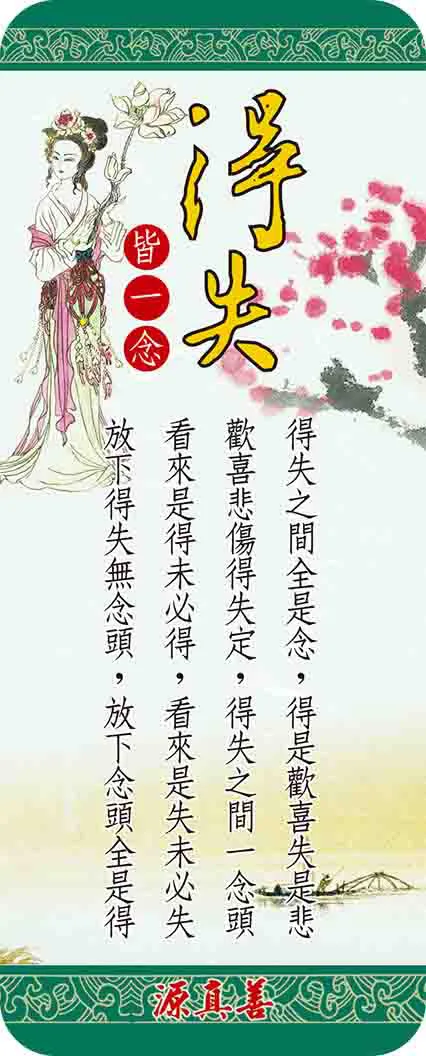 得失
皆一念
得失之間全是念，得是歡喜失是悲
歡喜悲傷得失定，得失之間一念頭
看來是得未必得，看來是失未必失
放下得失無念頭，放下念頭全是得
源真善